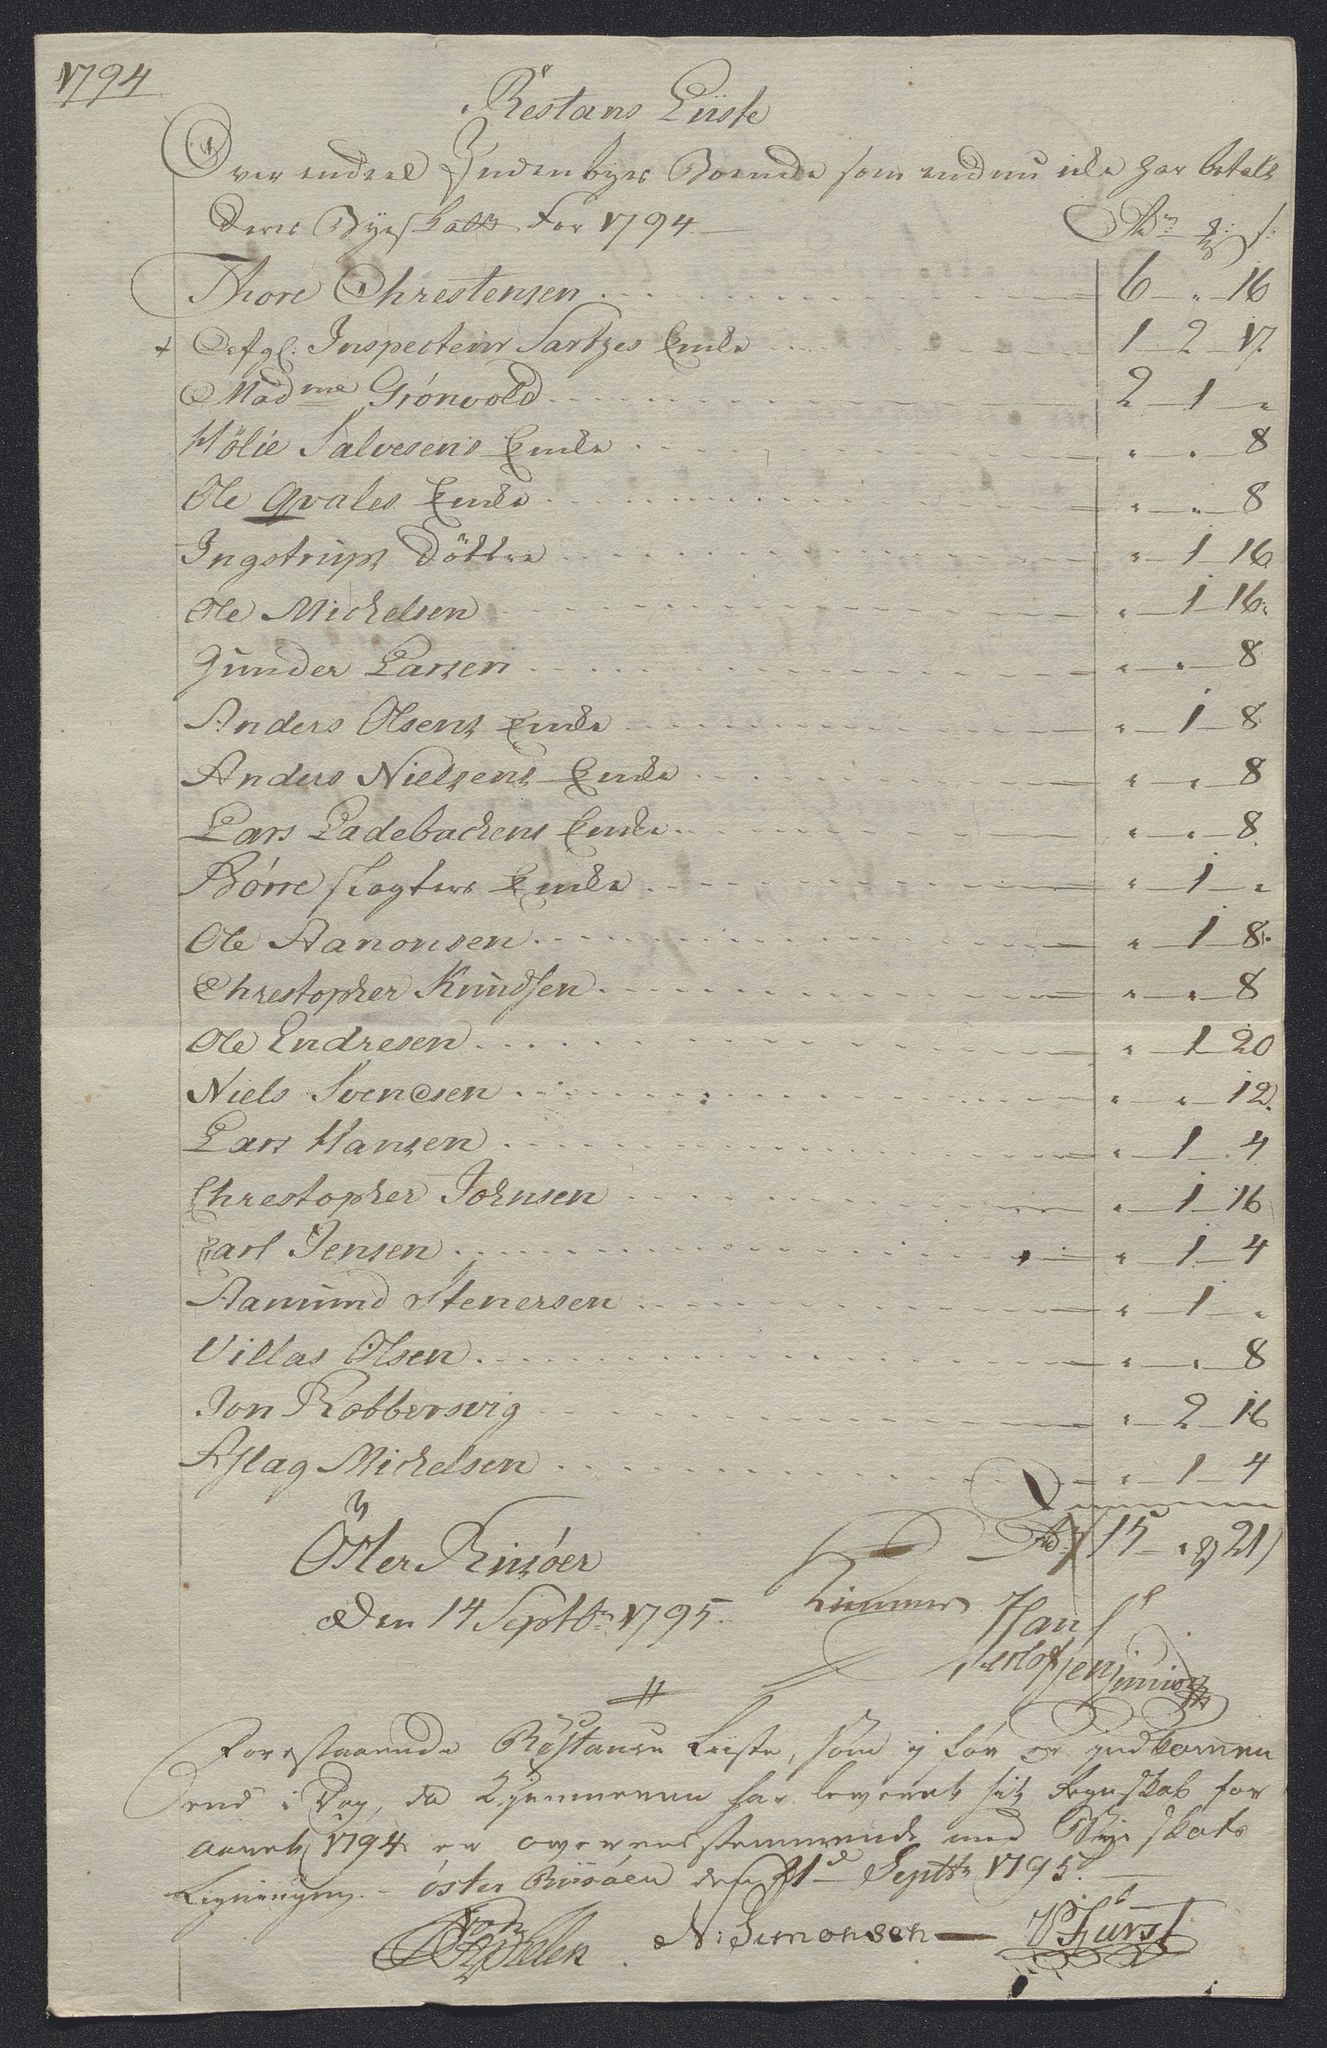 1794
Restans Liste
Over endeel Indenbyes Boende som endnu icke har betalt
deres Byeskatt for 1794
Rdr. ß:
Thore Chrestensen 6 " 16
+ Defgl. Inspecteur Sartzes Encke 1 2 17
Madme Grónvold 2 1 "
Hölie Salvesens Encke " " 8
Ole Qvales Encke " " 8
Ingstrups Döttre " 1 16
Ole Michelsen " 1 16
Gunder Larsen " " 8
Anders Olsens Encke " 1 8
Anders Nielsens Encke " " 8
Lars Ladebachens Encke " " 8
Börre slagters Encke " 1 "
Ole Aanonsen " 1 8
Chrestopher Knudsen " " 8
Ole Endresen " 1 20
Niels Svendsen " " 12
Lars Hansen " 1 4
Chrestopher Johnsen " 1 16
Carl Jensen " 1 4
Aamund Stenersen " 1 "
Villas Olsen " " 8
Jon Robbersvig " 2 16
Aslag Michelsen " 1 4
Rd 15 " 21
Öster Riisöer
den 14 Septbr 1795.
Kiemner Hans
junior
Forestaaende Restance Liste, som ej før er indkommen
end i Dag, da Kjemneren har leveret sit Regnskab for
aaret 1794 er overensstemmende med Bye skats
Ligningen. - öster Riisöer den 21d Septbr 1795.
N: Simonsen — Fürst